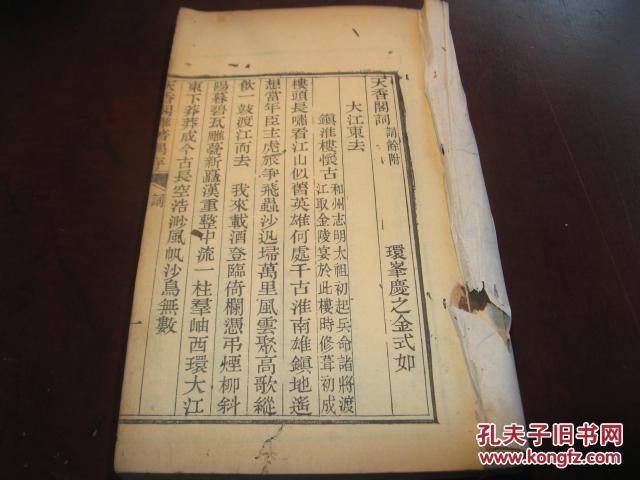 天香閣詞 詞餘附
環峯慶之金式如
大江東去
鎮淮樓懷古 和州志明太祖初起兵命諸將渡
江取金陵宴於此樓時修葺初成
樓頭長嘯看江山似舊英雄何處千古淮南雄鎮地遙
想當年臣主虎旅爭飛蟲沙迅埽萬里風雲聚高歌縱
飲一鼓渡江而去 我來載酒登臨倚欄憑弔煙柳斜
陽暮碧瓦雕甍新矗漢重整中流一柱羣岫西環大江
東下莽莽成今古長空浩渺風帆沙鳥無數
天香閣 詞
一
孔夫子旧书网
www.kongfz.com